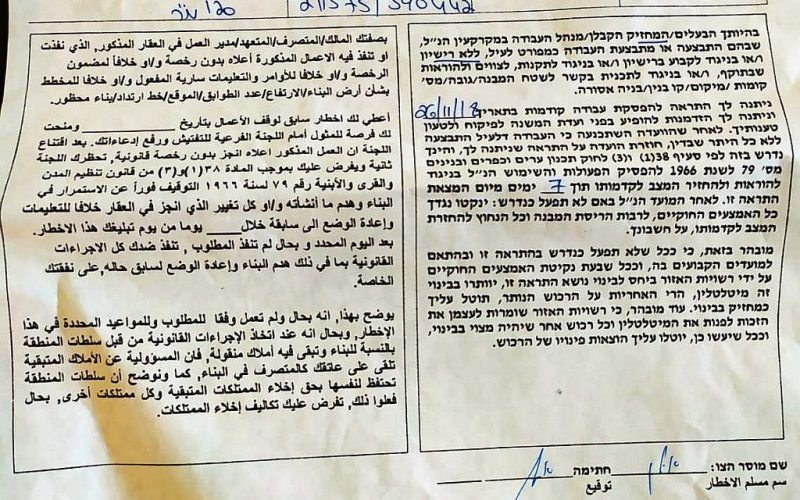 211575/590442
120 מ"ר
בהיותך הבעלים/המחזיק הקבלן/מנהל העבודה במקרקעין הנ"ל,
שבהם התבצעה או מתבצעת העבודה כמפורט לעיל, ללא רישיון
ו/או בניגוד לקבוע ברישיון ו/או בניגוד לתקנות, לצווים ולהוראות
שבתוקף, ו/או בניגוד לתכנית בקשר לשטח המבנה/גובה/מס'
קומות /מיקום/קו בנין/בניה אסורה.
ניתנה לך התראה להפסקת עבודה קודמות בתאריך 26/11/18
וניתנה לך הזדמנות להופיע בפני ועדת המשנה לפיקוח ולטעון
טענותיך. לאחר שהוועדה השתכנעה כי העבודה דלעיל התבצעה
ללא כל היתר שבדין, חוזרת הועדה על התראה שניתנה לך, והינך
נדרש בזה לפי סעיף 38(1) ו(3) לחוק תכנון ערים וכפרים ובנינים
מס' 79 לשנת 1966 להפסיק הפעולות והשימוש הנ"ל בניגוד
להוראות ולהחזיר המצב לקדמותו תוך 7 ימים מיום המצאת
התראה זו. לאחר המועד הנ"ל באם לא תפעל כנדרש: ינקטו נגדך
כל האמצעים החוקיים, לרבות הריסת המבנה וכל הנחוץ להחזרת
המצב לקדמותו, על חשבונך.
מובהר בזאת, כי ככל שלא תפעל כנדרש בהתראה זו ובהתאם
למועדים הקבועים בה, וככל שבעת נקיטת האמצעים החוקיים
על ידי רשויות האזור ביחס לבינוי נושא התראה זו, יוותרו בבינוי
זה מיטלטלין, הרי האחריות על הרכוש הנותר, תוטל עליך
כמחזיק בבינוי. עוד מובהר, כי רשויות האזור שומרות לעצמן את
הזכות לפנות את המיטלטלין וכל רכוש אחר שיהיה מצוי בבינוי,
וככל שיעשו כן, יוטלו עליך הוצאות פינויו של הרכוש.
بصفتك المالك/المتصرف/المتعهد/مدير العمل في العقار المذكور, الذي نفذت
او تنفذ فيه الاعمال المذكورة أعلاه بدون رخصة و/او خلافا لمضمون
الرخصة و/او خلافا للأوامر والتعليمات سارية المفعول و/او خلافا للمخطط
بشأن أرض البناء/الارتفاع/عدد الطوابق/الموقع/خط ارتداد/بناء محظور.
أعطي لك اخطار سابق لوقف الأعمال بتاريخ ________ ومنحت
لك فرصة للمثول أمام اللجنة الفرعية للتفتيش ورفع إدعاءاتك. بعد اقتناع
اللجنة ان العمل المذكور اعلاه انجز بدون رخصة قانونية, تحظرك اللجنة
ثانية ويفرض عليك بموجب المادة ٣٨(١)و(٣) من قانون تنظيم المدن
والقرى والأبنية رقم ٧٩ لسنة ١٩٦٦ التوقيف فوراً عن الاستمرار في
البناء وهدم ما أنشأته و/او كل تغيير الذي انجز في العقار خلافا للتعليمات
وإعادة الوضع الى سابقة خلال____ يوما من يوم تبليغك هذا الاخطار.
بعد اليوم المحدد و بحال لم تنفذ المطلوب , تنفذ ضدك كل الاجراءات
القانونية بما في ذلك هدم البناء وإعادة الوضع لسابق حاله, على نفقتك
الخاصة.
يوضح بهذا, انه بحال ولم تعمل وفقا للمطلوب وللمواعيد المحددة في هذا
الإخطار, وبحال انه عند اتخاذ الإجراءات القانونية من قبل سلطات المنطقة
بالنسبة للبناء وتبقى فيه أملاك منقولة, فان المسؤولية عن الأملاك المتبقية
تلقى على عاتقك كالمتصرف في البناء, كما ونوضح أن سلطات المنطقة
تحتفظ لنفسها بحق إخلاء الممتلكات المتبقية وكل ممتلكات أخرى, بحال
فعلوا ذلك, تفرض عليك تكاليف إخلاء الممتلكات.
שם מוסר הצו: ________ חתימה ________
سم مسلم الاخطار توقيع